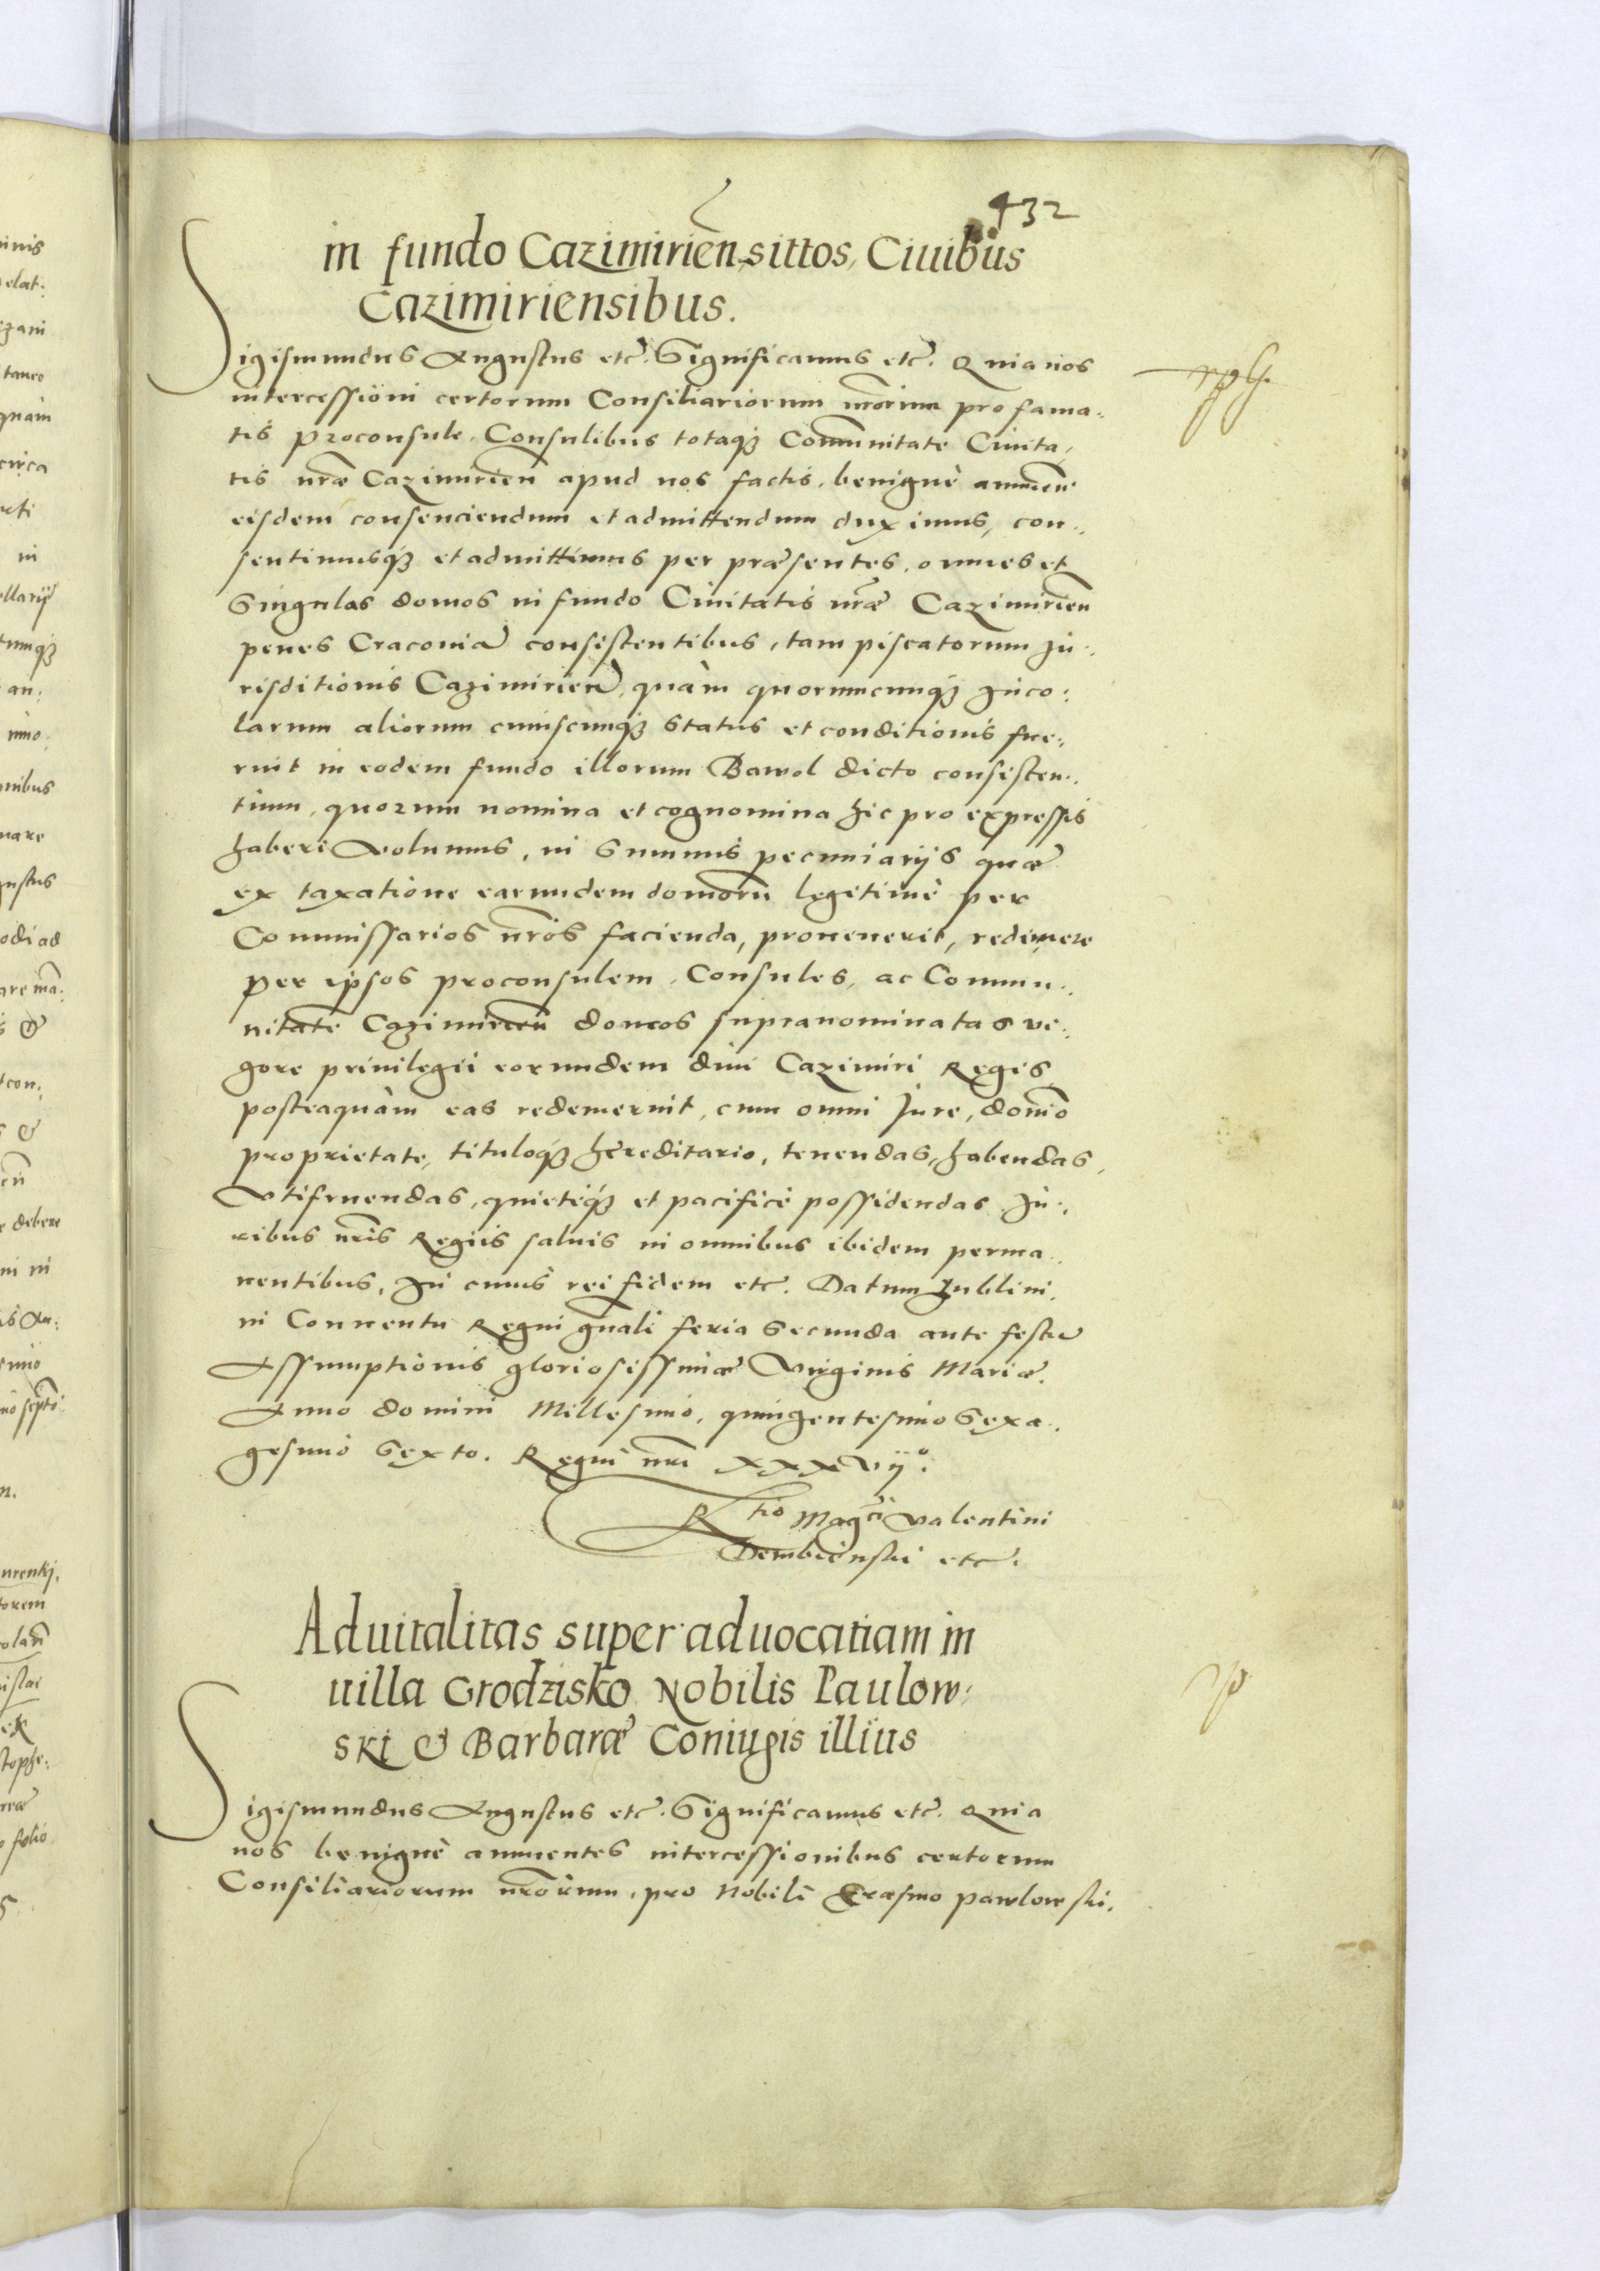 432
in fundo Cazimirien̄ sittos, Ciuibus
Cazimiriensibus.
Sigismundus Augustus etc̄. Significamus etc̄. Quia nos
intercessioni certorum Consiliariorum nr̄orum pro fama-
tis Proconsule, Consulibus totaq3 Com̄unitate Ciuita-
tis nr̄æ Cazimirien̄ apud nos factis, benignè annuen̄
eisdem consenciendum et admittendum duximus, con-
sentimusq3 et admittimus per præsentes, omnes et
Singulas domos in fundo Ciuitatis nr̄æ Cazimirien̄
penes Cracoviā consistentibus, tam piscatorum Ju-
risditionis Cazimirien̄, quàm quorumcunq3 Inco-
larum aliorum cuiuscunq3 status et conditionis fue-
rint in eodem fundo illorum Bawol dicto consisten-
tium, quorum nomina et cognomina hic pro expressis
haberi volumus, in Summis pecuniarijs quæ
ex taxatione earundem domorū legitimè per
Commissarios nr̄os facienda, prouenerit, redimere
per ipsos proconsulem, Consules, ac Commu-
nitatē Cazimirien̄ domos supranominatas vi-
gore priuilegii eorundem diui Cazimiri Regis
posteaquàm eas redemerint, cum omni Jure, domīo
proprietate, tituloq3 hereditario, tenendas, habendas,
vtifruendas, quietèq3 et pacificè possidendas Ju-
ribus nr̄is Regiis saluis in omnibus ibidem perma-
nentibus, In cuius rei fidem etc̄. Datum Lublini,
in Conuentu Regni gn̄ali feria Secunda ante festū
Assumptionis gloriosissimæ Virginis Mariæ.
Anno domini Millesimo, quingentesimo Sexa-
gesimo Sexto. Regni nr̄i XXXVIIº.
Rtio Magci Valentini
Dembienski etc̄.
Aduitalitas super aduocatiam in
uilla Grodzisko Nobilis Paulow-
ski & Barbaræ Coniugis illius
Sigismundus Augustus etc̄. Significamus etc̄. Quia
nos benignè annuentes intercessionibus certorum
Consiliariorum nr̄orum, pro Nobili Erasmo Pawlowski,